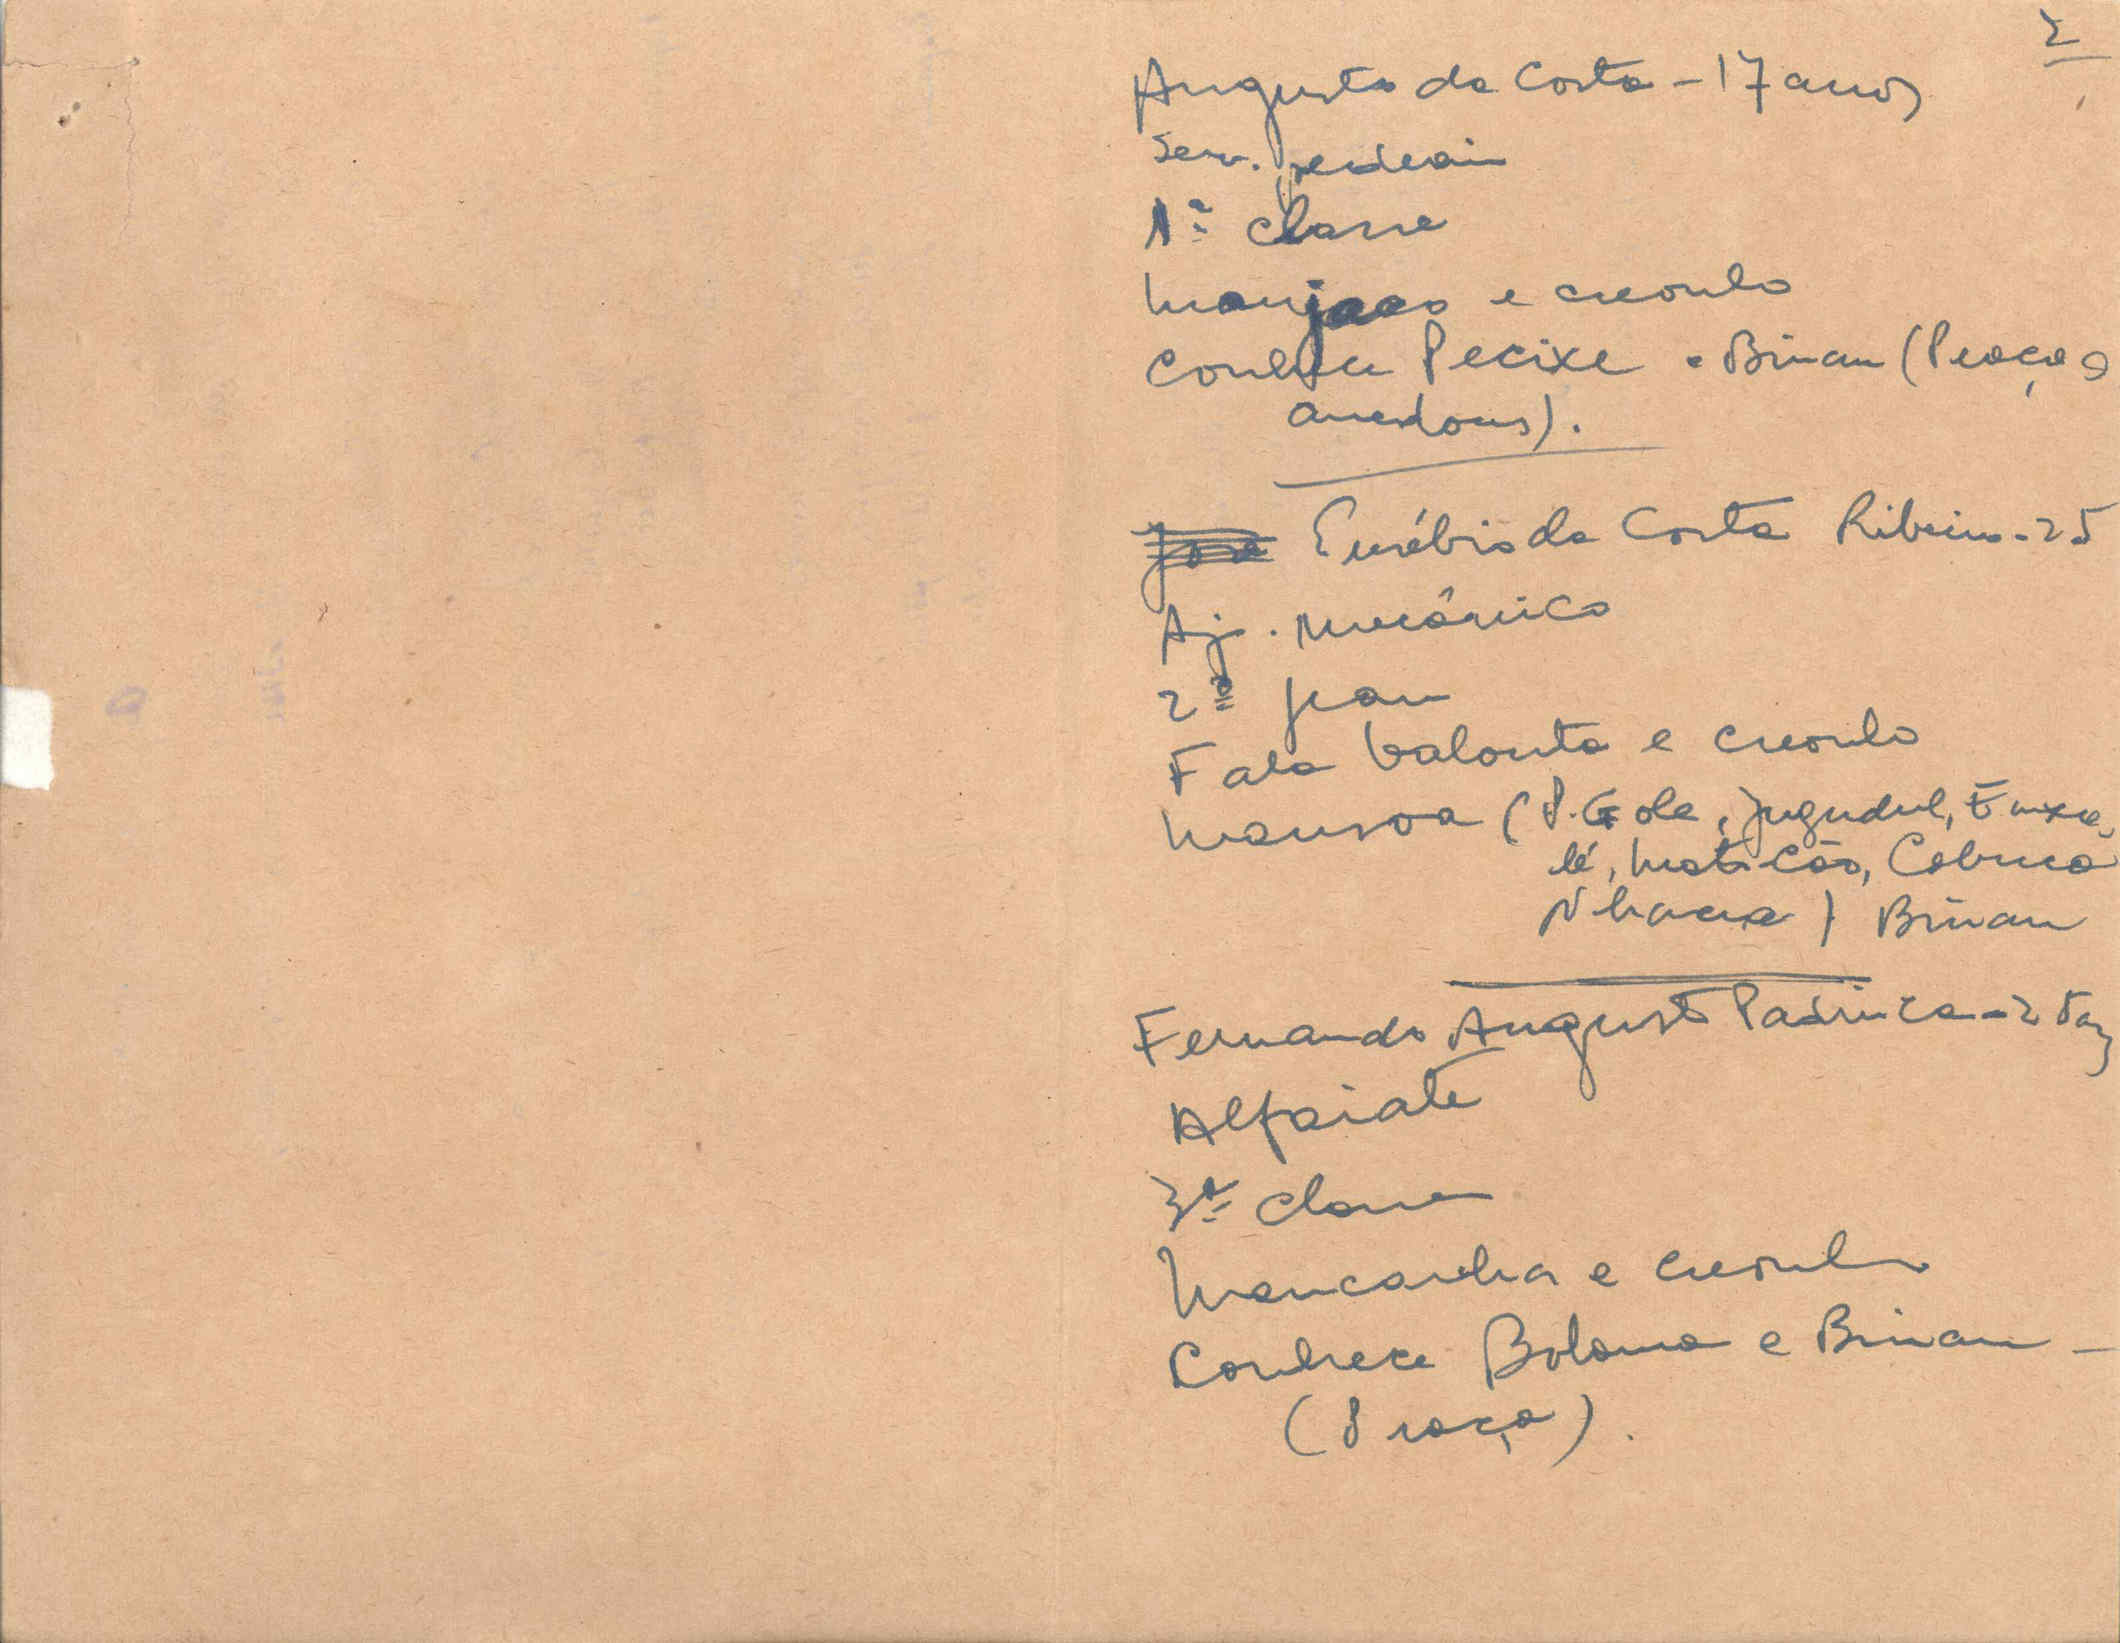 2
Augusto da Costa - 17 anos
Serv. pedreiro
1ª classe
Manjaco e creoulo
Conhece Pecixe e Bissau (Praça e
arredores).
José Eusébio da Costa Ribeiro - 25
Aj. Mecânico
2º grau
Fala balanta e creoulo
Mansoa (P. Gole, Jugudul, Enxa
lé, Maticão, Cobucá
Nhacra) Bissau
Fernando Augusto - 25 a
Alfaiate
3ª classe
Mancanha e creoulo
Conhece Bolama e Bissau -
(Praça).